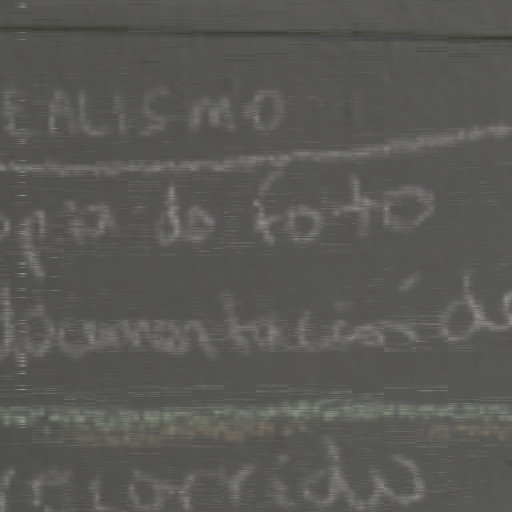 EALISMO
opia de foto
documentación de
recorrido